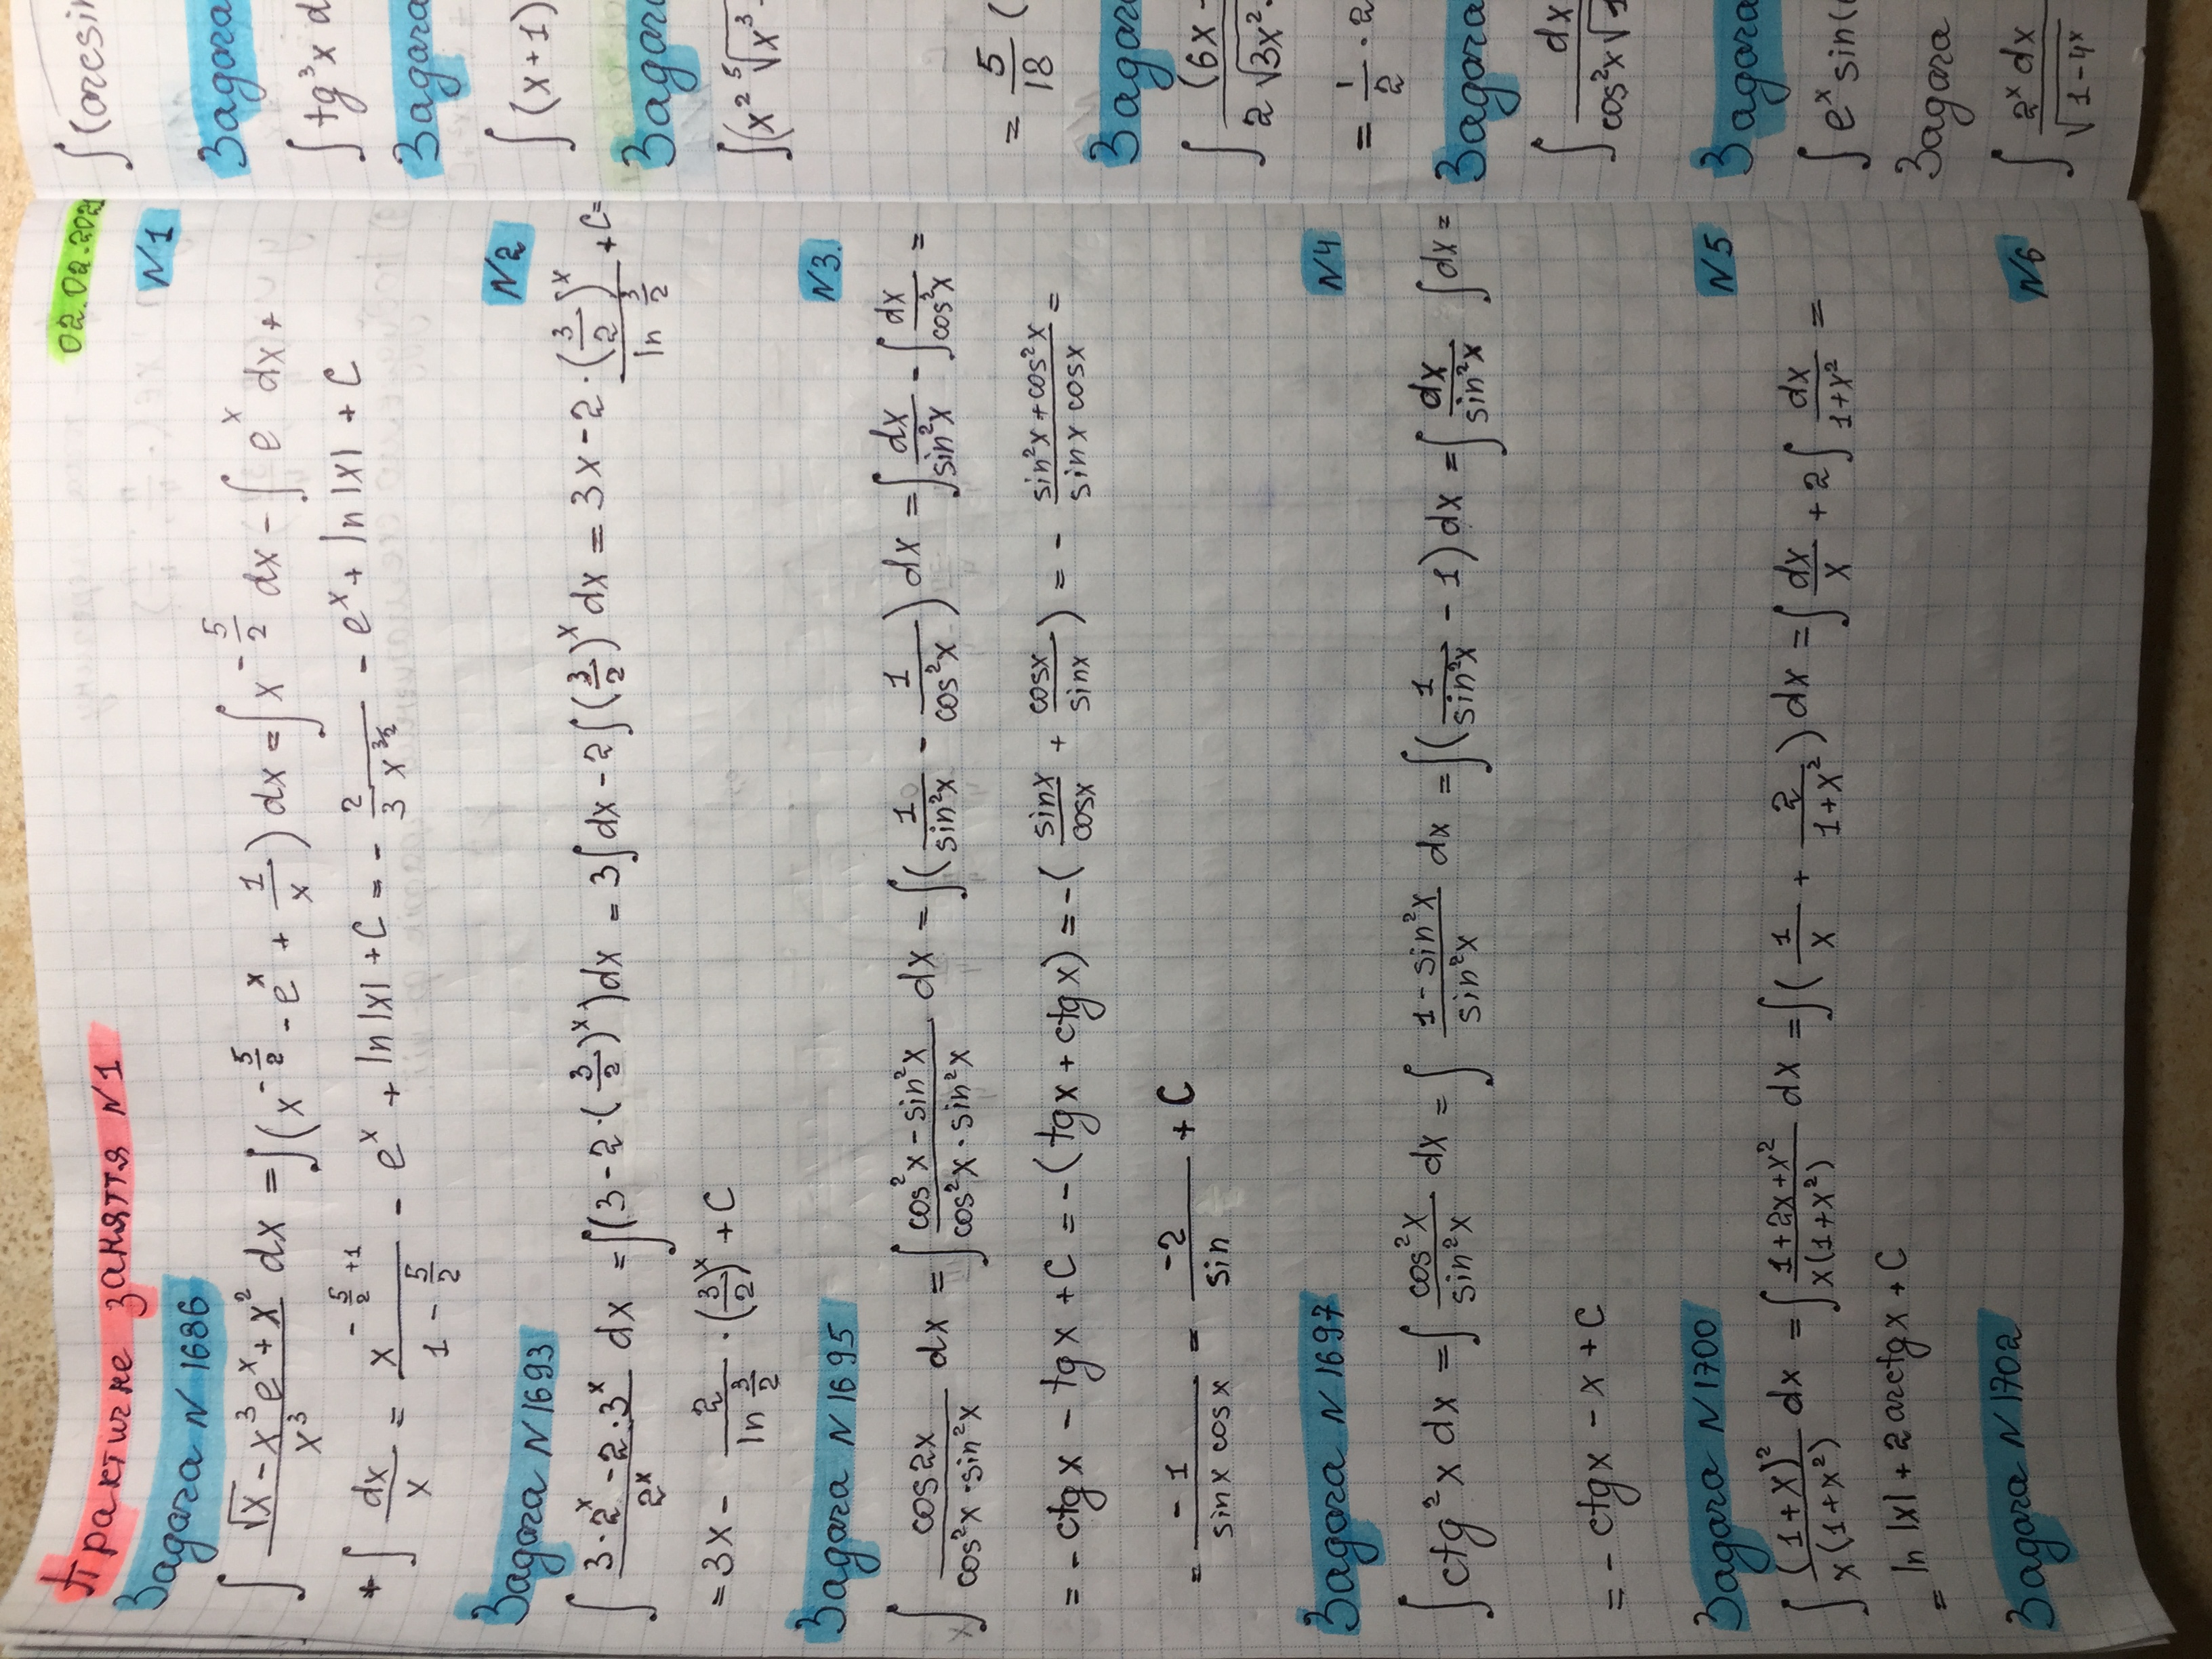 Практичне заняття N1 02.02.202
Задача N 1686 N1
∫ (√x - x³eˣ + x²)/x³ dx = ∫(x^(-5/2) - eˣ + 1/x) dx = ∫ x^(-5/2) dx - ∫ eˣ dx +
+ ∫ dx/x = x^(-5/2 +1)/(1 - 5/2) - eˣ + ln|x| + C = - 2/(3x^(3/2)) - eˣ + ln|x| + C
Задача N 1693 N2
∫ (3·2ˣ - 2·3ˣ)/2ˣ dx = ∫(3 - 2·(3/2)ˣ)dx = 3∫dx - 2∫(3/2)ˣ dx = 3x - 2·(3/2)ˣ/(ln 3/2) + C =
= 3x - 2/(ln 3/2) · (3/2)ˣ + C
Задача N 1695 N3.
∫ cos2x/(cos²x·sin²x) dx = ∫ (cos²x - sin²x)/(cos²x·sin²x) dx = ∫(1/sin²x - 1/cos²x) dx = ∫ dx/sin²x - ∫ dx/cos²x =
= - ctgx - tgx + C = - (tgx + ctgx) = - (sinx/cosx + cosx/sinx) = - (sin²x + cos²x)/(sinx cosx) =
= -1/(sinx cosx) = -2/sin + C
Задача N 1697 N4
∫ctg²x dx = ∫ cos²x/sin²x dx = ∫ (1 - sin²x)/sin²x dx = ∫(1/sin²x - 1) dx = ∫ dx/sin²x ∫dx =
= - ctgx - x + C
Задача N 1700 N5
∫ (1+x)²/(x(1+x²)) dx = ∫ (1+2x+x²)/(x(1+x²)) dx = ∫(1/x + 2/(1+x²)) dx = ∫ dx/x + 2∫ dx/(1+x²) =
= ln|x| + 2arctgx + C
Задача N 1702 N6
∫(arcsin
Задача
∫tg³x d
Задача
∫(x+1)
Задач
∫(x² ⁵√x³
= 5/18 (
Задач
∫ (6x -/(2√3x²
= 1/2 · 2
Задача
∫ dx/(cos²x√1
Задача
∫eˣ sin(
Задача
∫ 2ˣdx/√(1-4ˣ